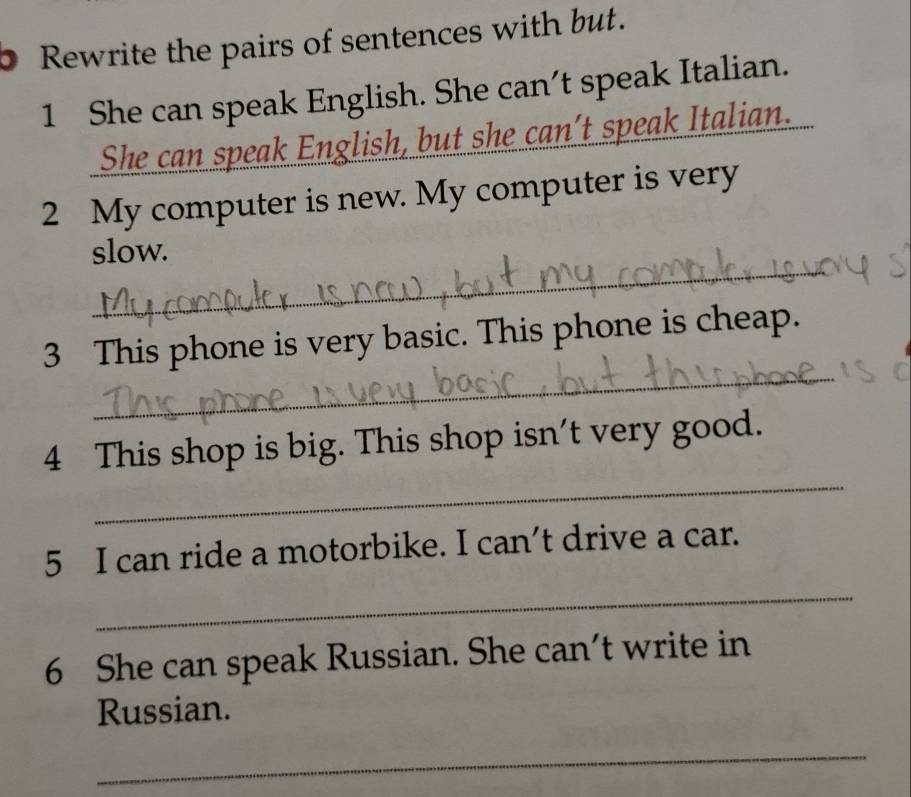 b Rewrite the pairs of sentences with but.
1 She can speak English. She can't speak Italian.
She can speak English, but she can't speak Italian.
2 My computer is new. My computer is very
slow.
My computer is new, but my computer is very s
3 This phone is very basic. This phone is cheap.
This phone is very basic, but this phone is c
4 This shop is big. This shop isn't very good.
5 I can ride a motorbike. I can't drive a car.
6 She can speak Russian. She can't write in
Russian.